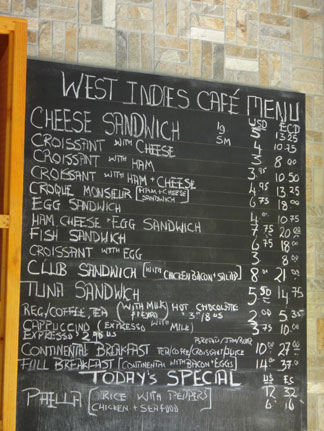 WEST INDIES CAFÉ MENU
USD ECD
CHEESE SANDWICH lg 5 13.25
sm 4 10.75
CROISSANT WITH CHEESE 3 8.00
CROISSANT WITH HAM 3.95 10.50
CROISSANT WITH HAM + CHEESE 4.95 13.25
CROQUE MONSIEUR [HAM + CHEESE SANDWICH] 6.75 18.00
EGG SANDWICH 4.00 10.75
HAM, CHEESE + EGG SANDWICH 7.75 20.00
FISH SANDWICH 6.75 18.00
CROISSANT WITH EGG 3 8.00
CLUB SANDWICH [WITH CHICKEN BACON + SALAD] 8.00 21.00
TUNA SANDWICH 5.50 14.75
REG/COFFEE, TEA (WITH MILK) HOT CHOCOLATE 2.00 5.35
CAPPUCCINO (EXPRESSO WITH MILK) 3.75 10.00
EXPRESSO
CONTINENTAL BREAKFAST TEA/COFFE/CROISSANT/JUICE 10.00 27.00
FULL BREAKFAST [CONTINENTAL WITH BACON + EGGS] 14.00 37.00
TODAY'S SPECIAL
US EC
PAILLA [RICE WITH PEPPERS 12 32
CHICKEN + SEAFOOD] 6 16